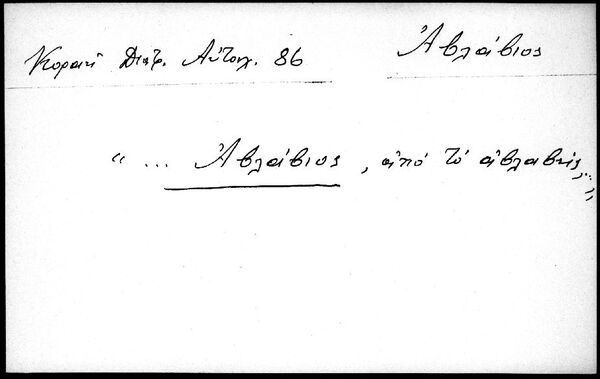 Κοραή Διατρ. Αὐτοσχ. 86
Ἀβλάβιος
“ ... Ἀβλάβιος, ἀπό τό ἀβλαβής, ... ”